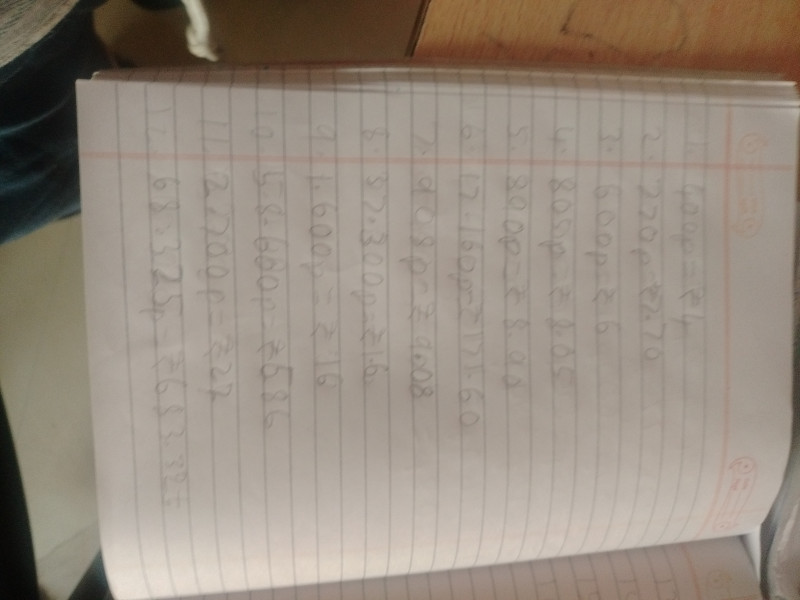 1. 400p = ₹4
2. 270p = ₹2.70
3. 600p = ₹6
4. 805p = ₹8.05
5. 800p = ₹8.00
6. 17.160p = ₹171.60
7. 908p = ₹9.08
8. 37.300p = ₹
9. 1.600p = ₹16
10. 58.600p = ₹586
11. 2700p = ₹27
12. 68.325p = ₹683